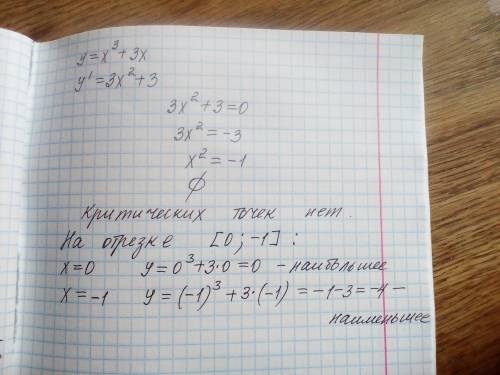 y = x³ + 3x
y' = 3x² + 3
3x² + 3 = 0
3x² = -3
x² = -1
∅
Критических точек нет.
На отрезке [0; -1] :
x = 0 y = 0³ + 3·0 = 0 - наибольшее
x = -1 y = (-1)³ + 3·(-1) = -1-3 = -4 -
наименьшее